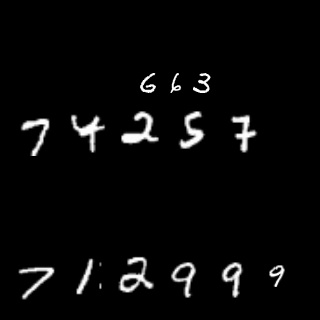 663
74257
712999